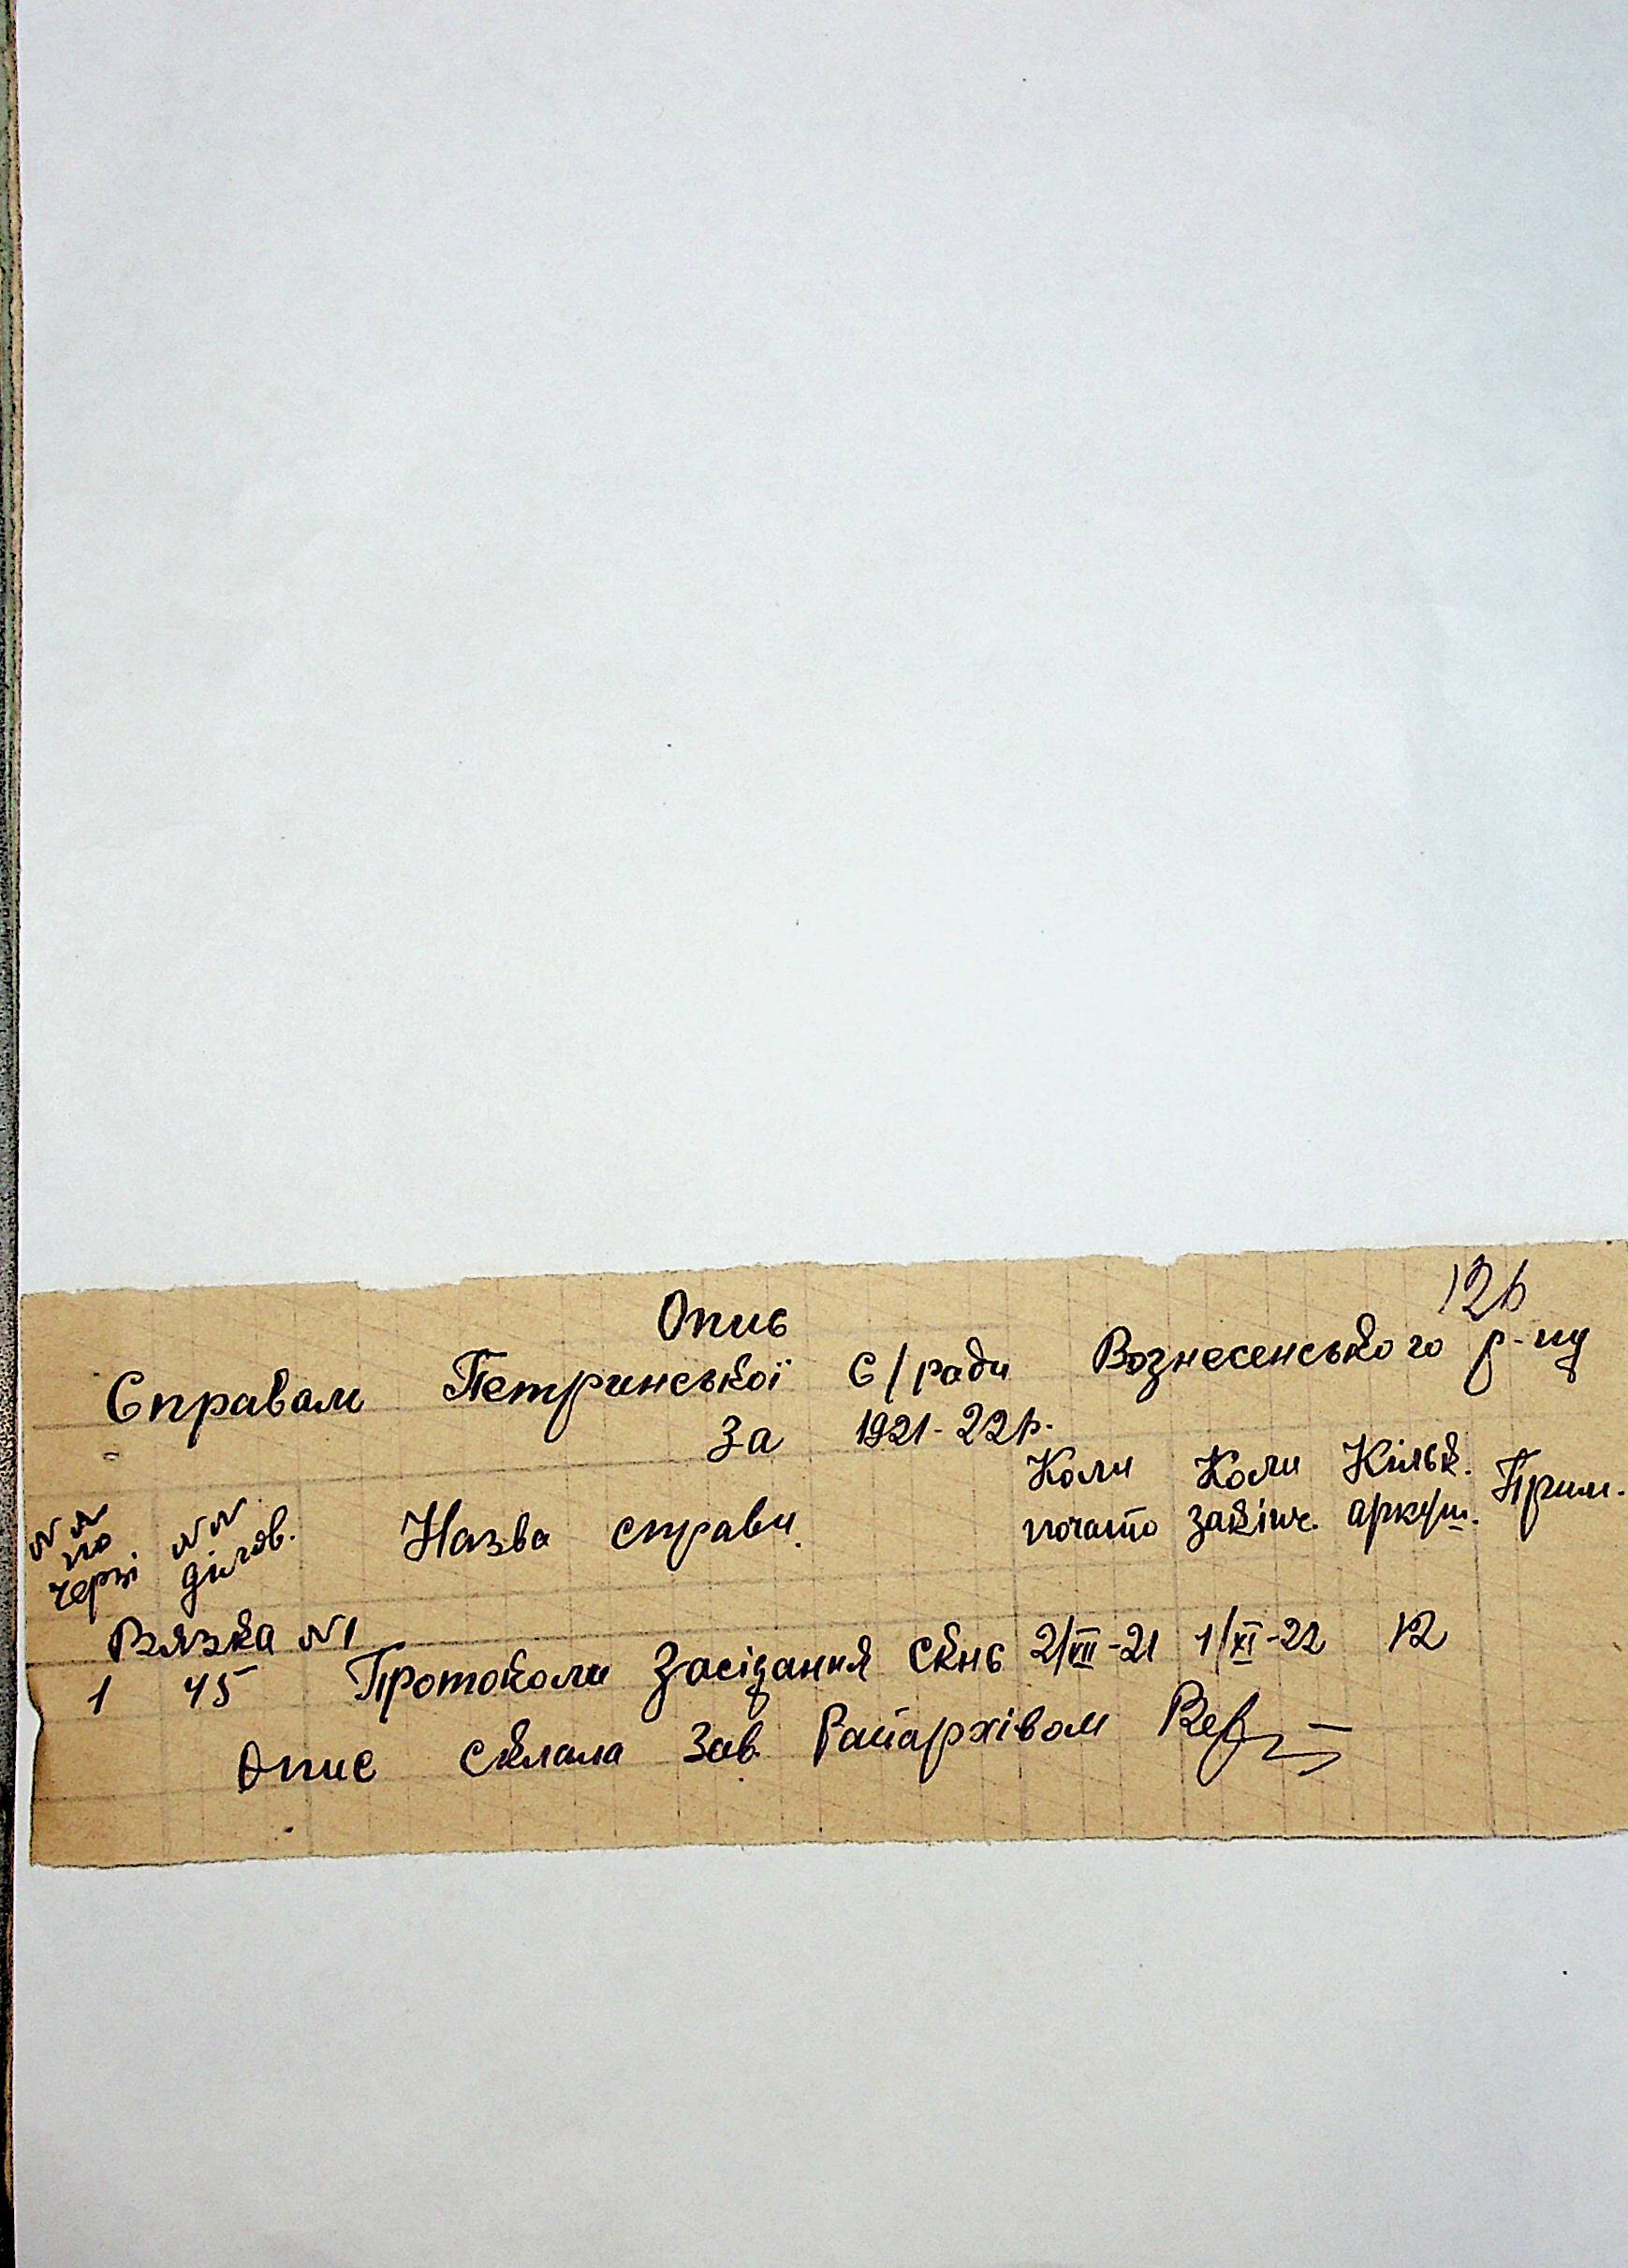 Опис
Справам Петринської С/ради Вознесенського р-ну
За 1921-22 р.
№№ по черзі №№ділов. Назва справи. Коли почато Коли закінч. Кільк. аркуш. Прим.
Вязка №1
1 45 Протоколи Засідання СКНС 2/VII-21 1/XI-22 12
Опис склала Зав. Райархівом